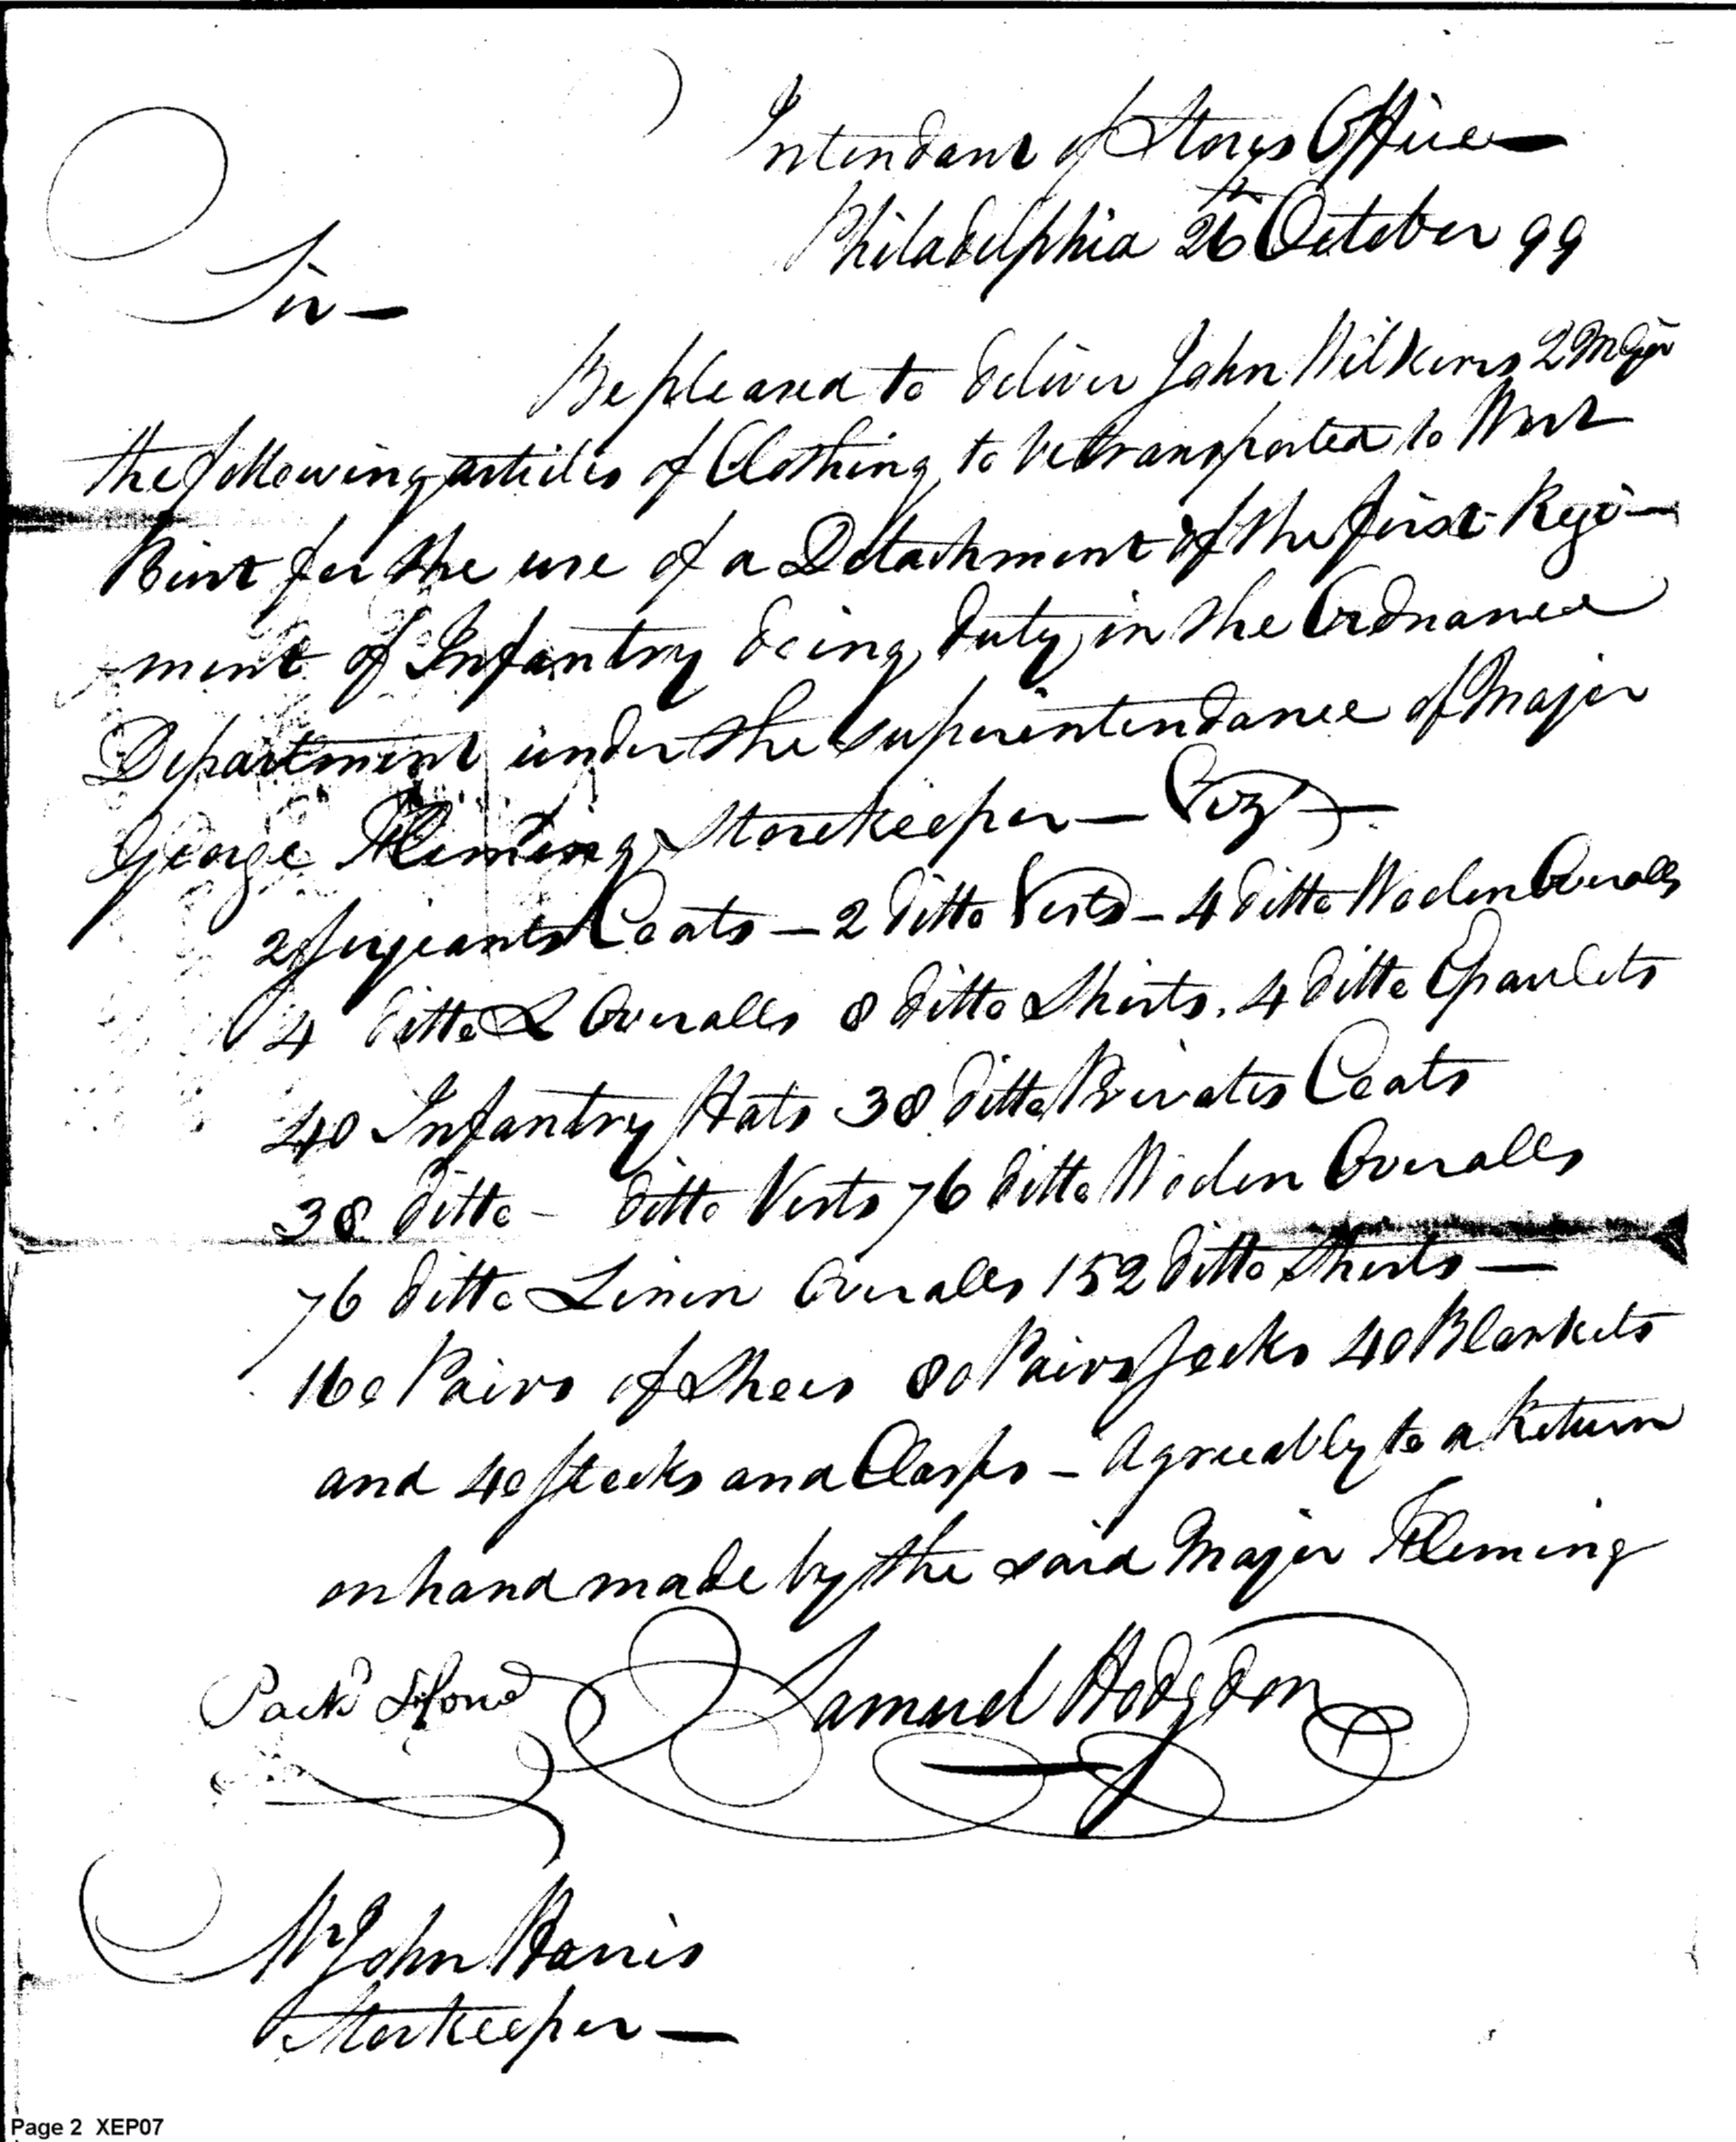 Intendant of Stores Office
Philadelphia 26th October 99
Sir —
Be pleased to deliver John Wilkins Q M Gen
the following articles of Clothing to be transported to West
Point for the use of a Detachment of the first Regi-
-ment of Infantry doing duty in the Ordnance
Department under the superintendance of Major
George Fleming Storekeeper — Viz —
2 Serjeants Coats — 2 ditto Vests — 4 ditto Woolen Overalls
4 ditto L Overalls 8 ditto Shirts. 4 ditto Epaulets
40 Infantry Hats 38 ditto Privates Coats
38 ditto — ditto Vests 76 ditto Woolen Overalls
76 ditto Linen Overalls 152 ditto Shirts —
160 Pairs of Shoes 80 Pairs Socks 40 Blankets
and 40 Stocks and Clasps — Agreeably to a Return
on hand made by the said Major Fleming
Samuel Hodgdon
Mr John Harris
Storekeeper —
Page 2 XEP07